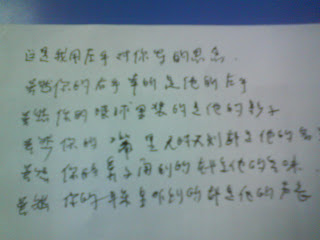 这是我用左手对你写的思念.
虽然你的右手牵的是他的左手
虽然你的眼球里装的是他的影子
虽然你的嘴里无时无刻都是他的名
虽然你的鼻子闻到的都是他的气味
虽然你的耳朵里听到的都是他的声音